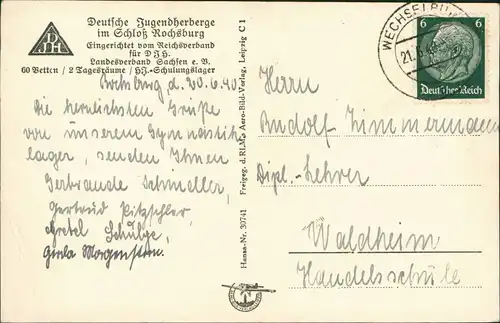 Deutsche Jugendherberge
im Schloß Rochsburg
Eingerichtet vom Reichsverband
für D J H.
Landesverband Sachsen e. V.
60 Betten / 2 Tagesräume / HJ.-Schulungslager
DJH
Rochsburg, d. 20.6.40.
Die herzlichsten Grüße
von unserem Gymnastik-
lager, senden Ihnen
Gertraude Schindler,
Gertraud Pitzschler,
Gretel Schulze,
Gerda Morgenstern.
Hansa-Nr. 30741 Freigeg. d. RLM. Aero-Bild-Verlag, Leipzig C 1
WECHSELBU
21.6.40
6 6
Deutsches Reich
Herrn
Rudolf Zimmermann
Dipl.-Lehrer
Waldheim
Handelsschule